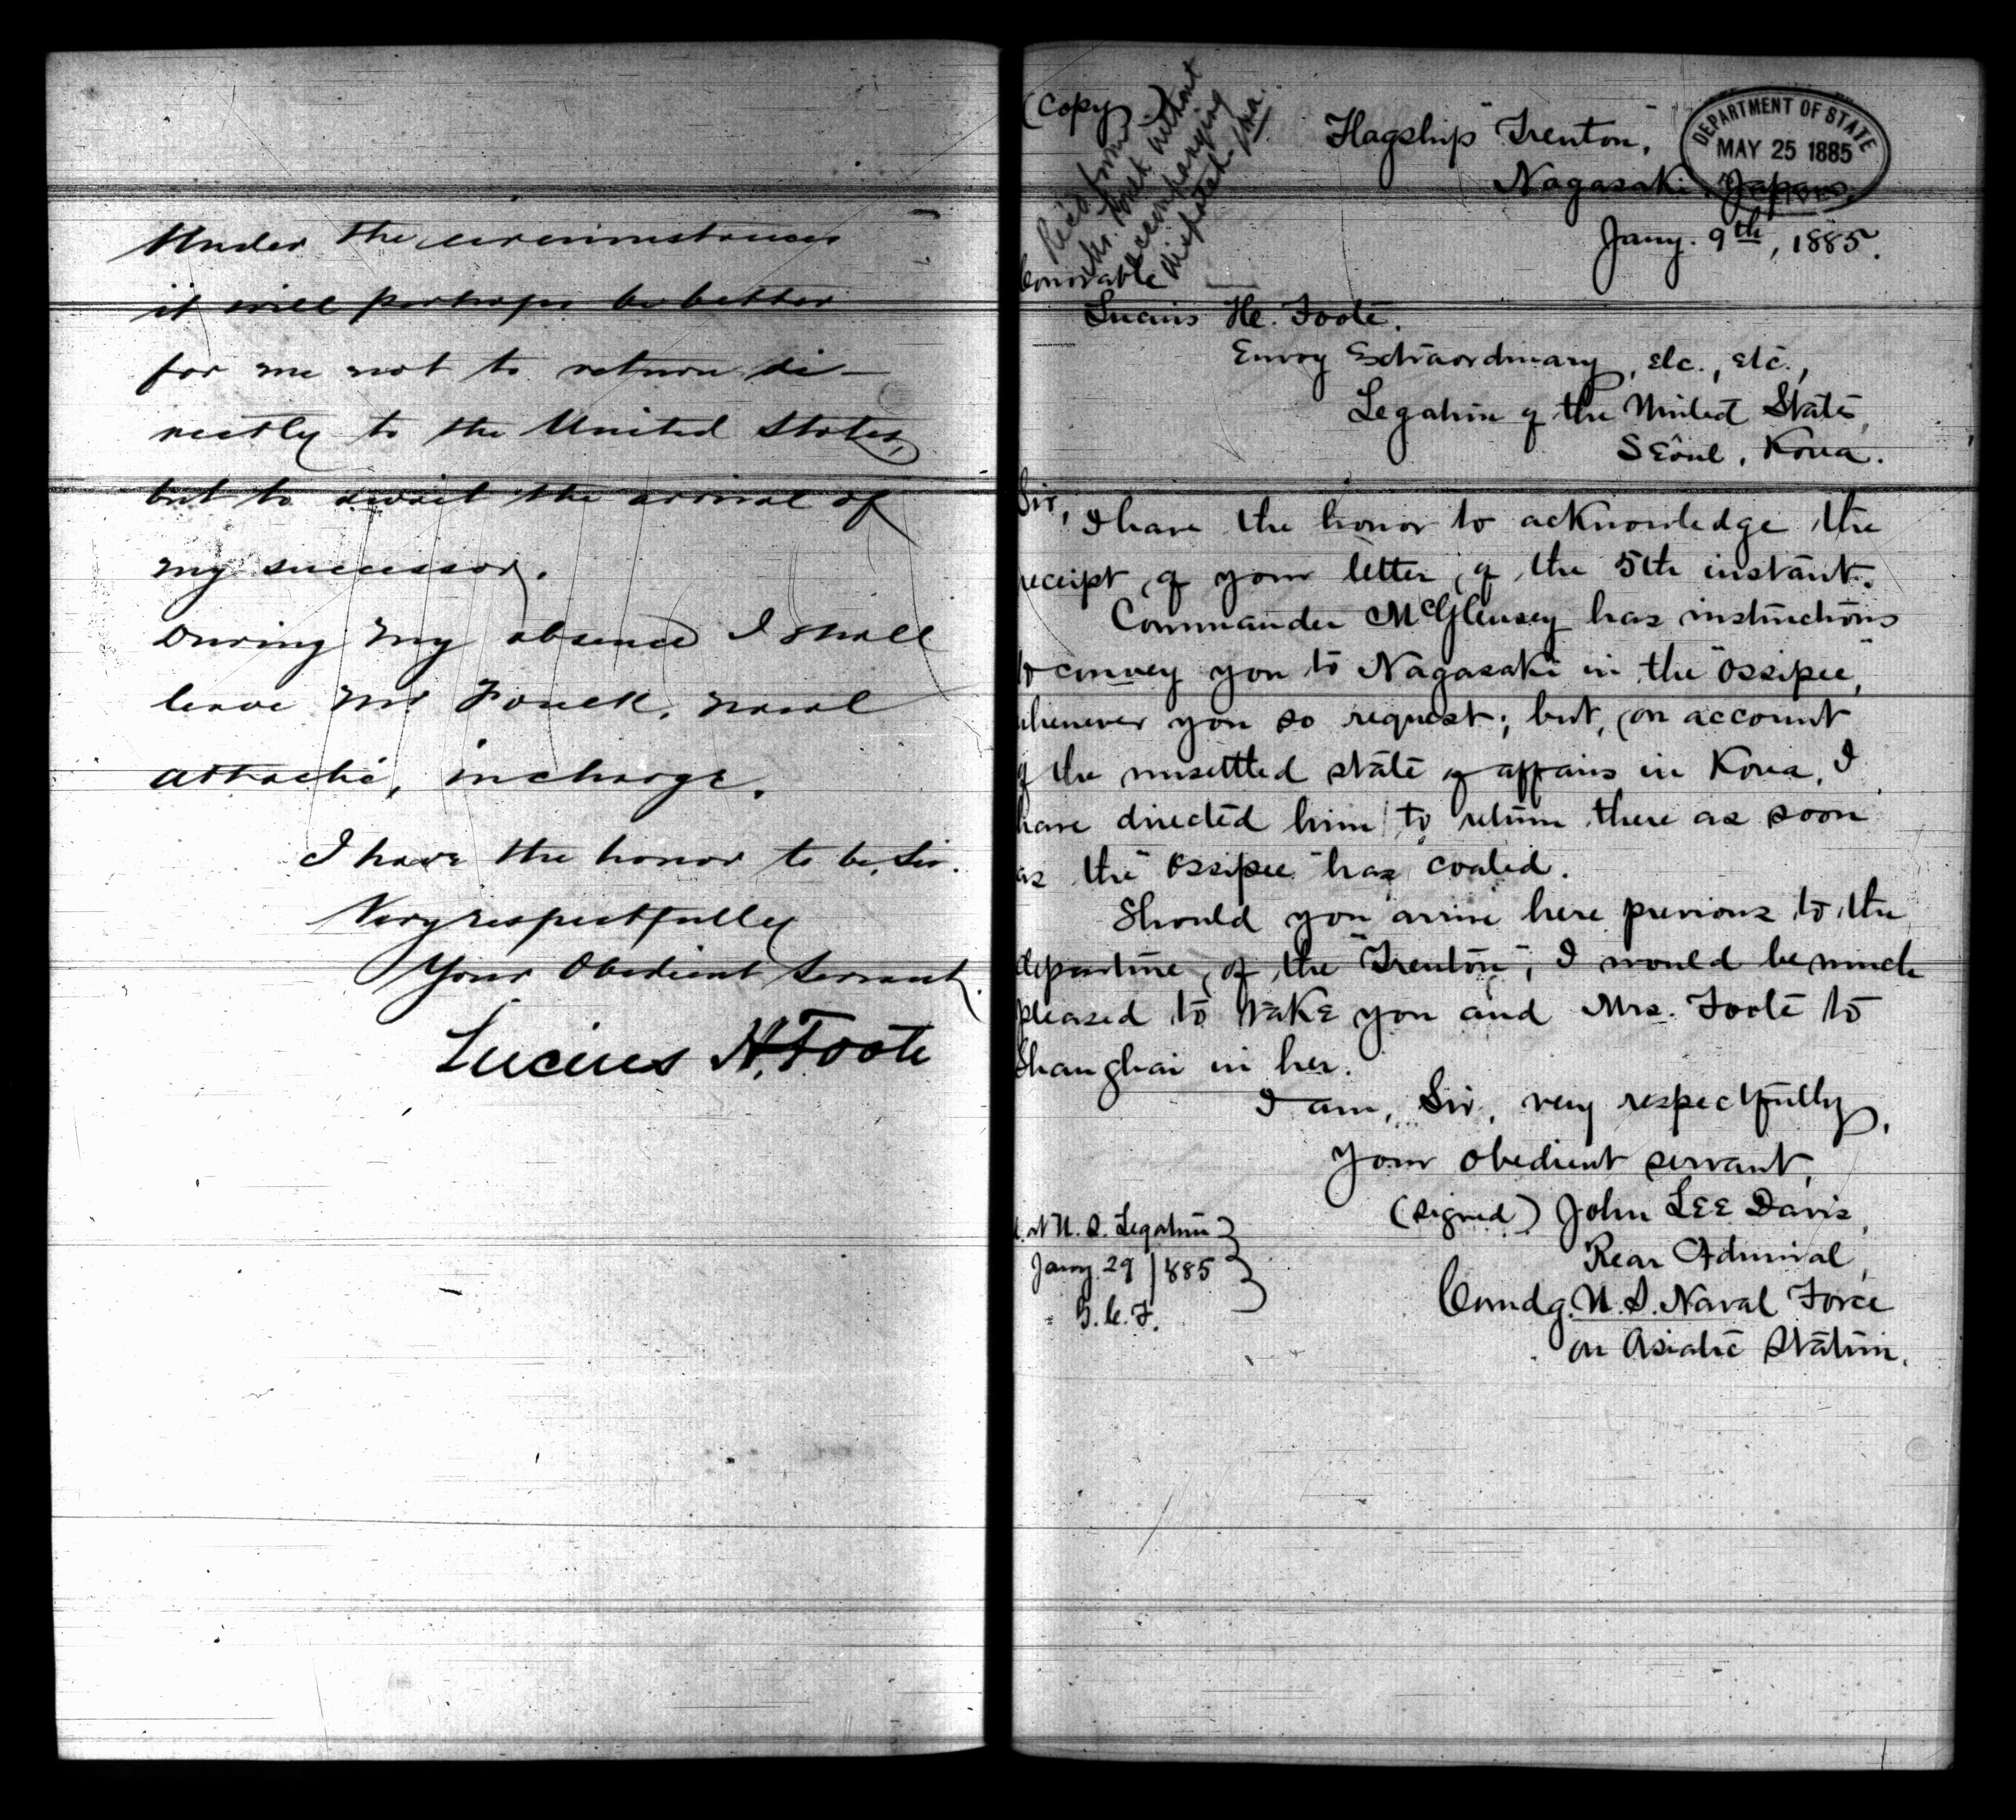 Under the circumstances
it will perhaps be better
for me not to return di-
rectly to the United States,
but to await the arrival of
my successor.
During my absence I shall
leave Mr Foulk, naval
attaché, in charge.
I have the honor to be, Sir.
Very respectfully
Your Obedient Servant.
Lucius H. Foote
(Copy)
Rec'd from
Mr. Foulk without
accompanying
dispatch
Flagship "Trenton,"
Nagasaki Japan
DEPARTMENT OF STATE
MAY 25 1885
Jany. 9th, 1885.
Honorable
Lucius H. Foote.
Envoy Extraordinary, etc., etc.,
Legation of the United States,
Sëoul, Korea.
Sir,
I have the honor to acknowledge the
receipt of your letter of the 5th instant.
Commander McGlensey has instructions
to convey you to Nagasaki in the "Ossipee,"
whenever you so request; but, on account
of the unsettled state of affairs in Korea, I
have directed him to return there as soon
as the "Ossipee" has coaled.
Should you arrive here previous to the
departure of the "Trenton", I would be much
pleased to take you and Mrs. Foote to
Shanghai in her.
I am, Sir, very respectfully,
Your obedient servant,
(signed) John Lee Davis,
Rear Admiral,
Comdg. U. S. Naval Force
on Asiatic Station.
at U. S. Legation
Jany. 29/1885
G. C. F.